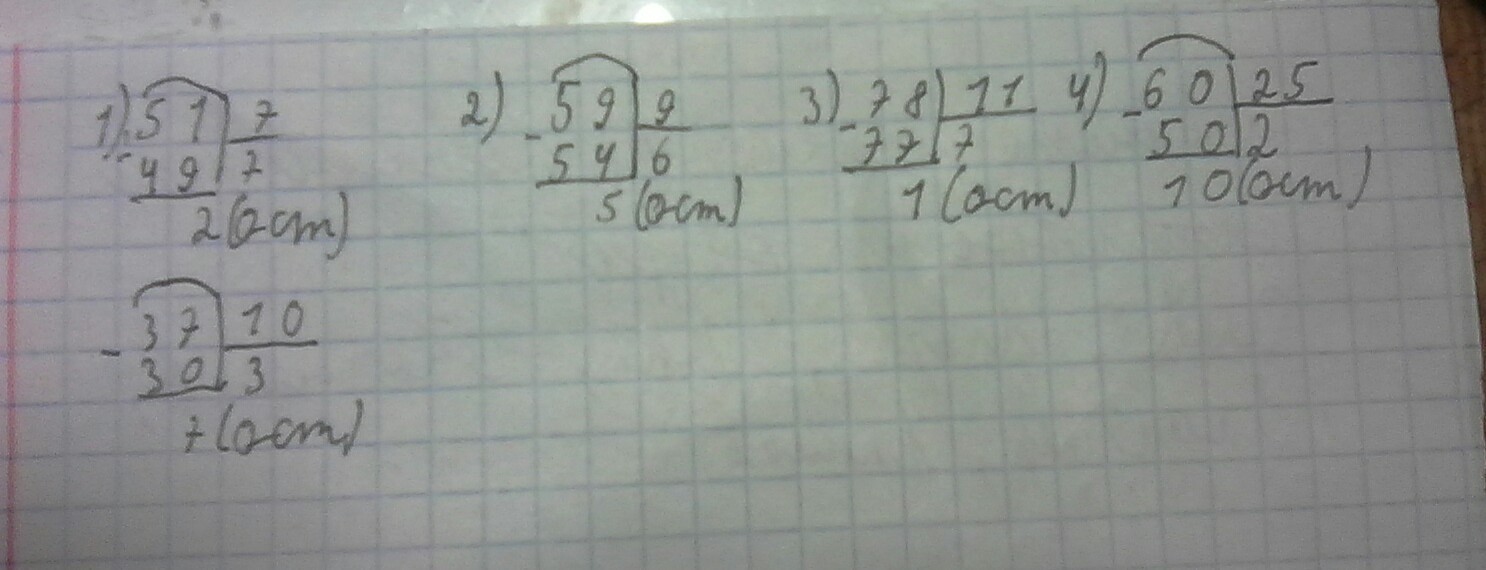 1) 51 | 7   2) 59 | 9   3) 78 | 11   4) 60 | 25
- 49 | 7   - 54 | 6   - 77 | 7   - 50 | 2
2 (ост)   5 (ост)   1 (ост)   10 (ост)
37 | 10
- 30 | 3
7 (ост)